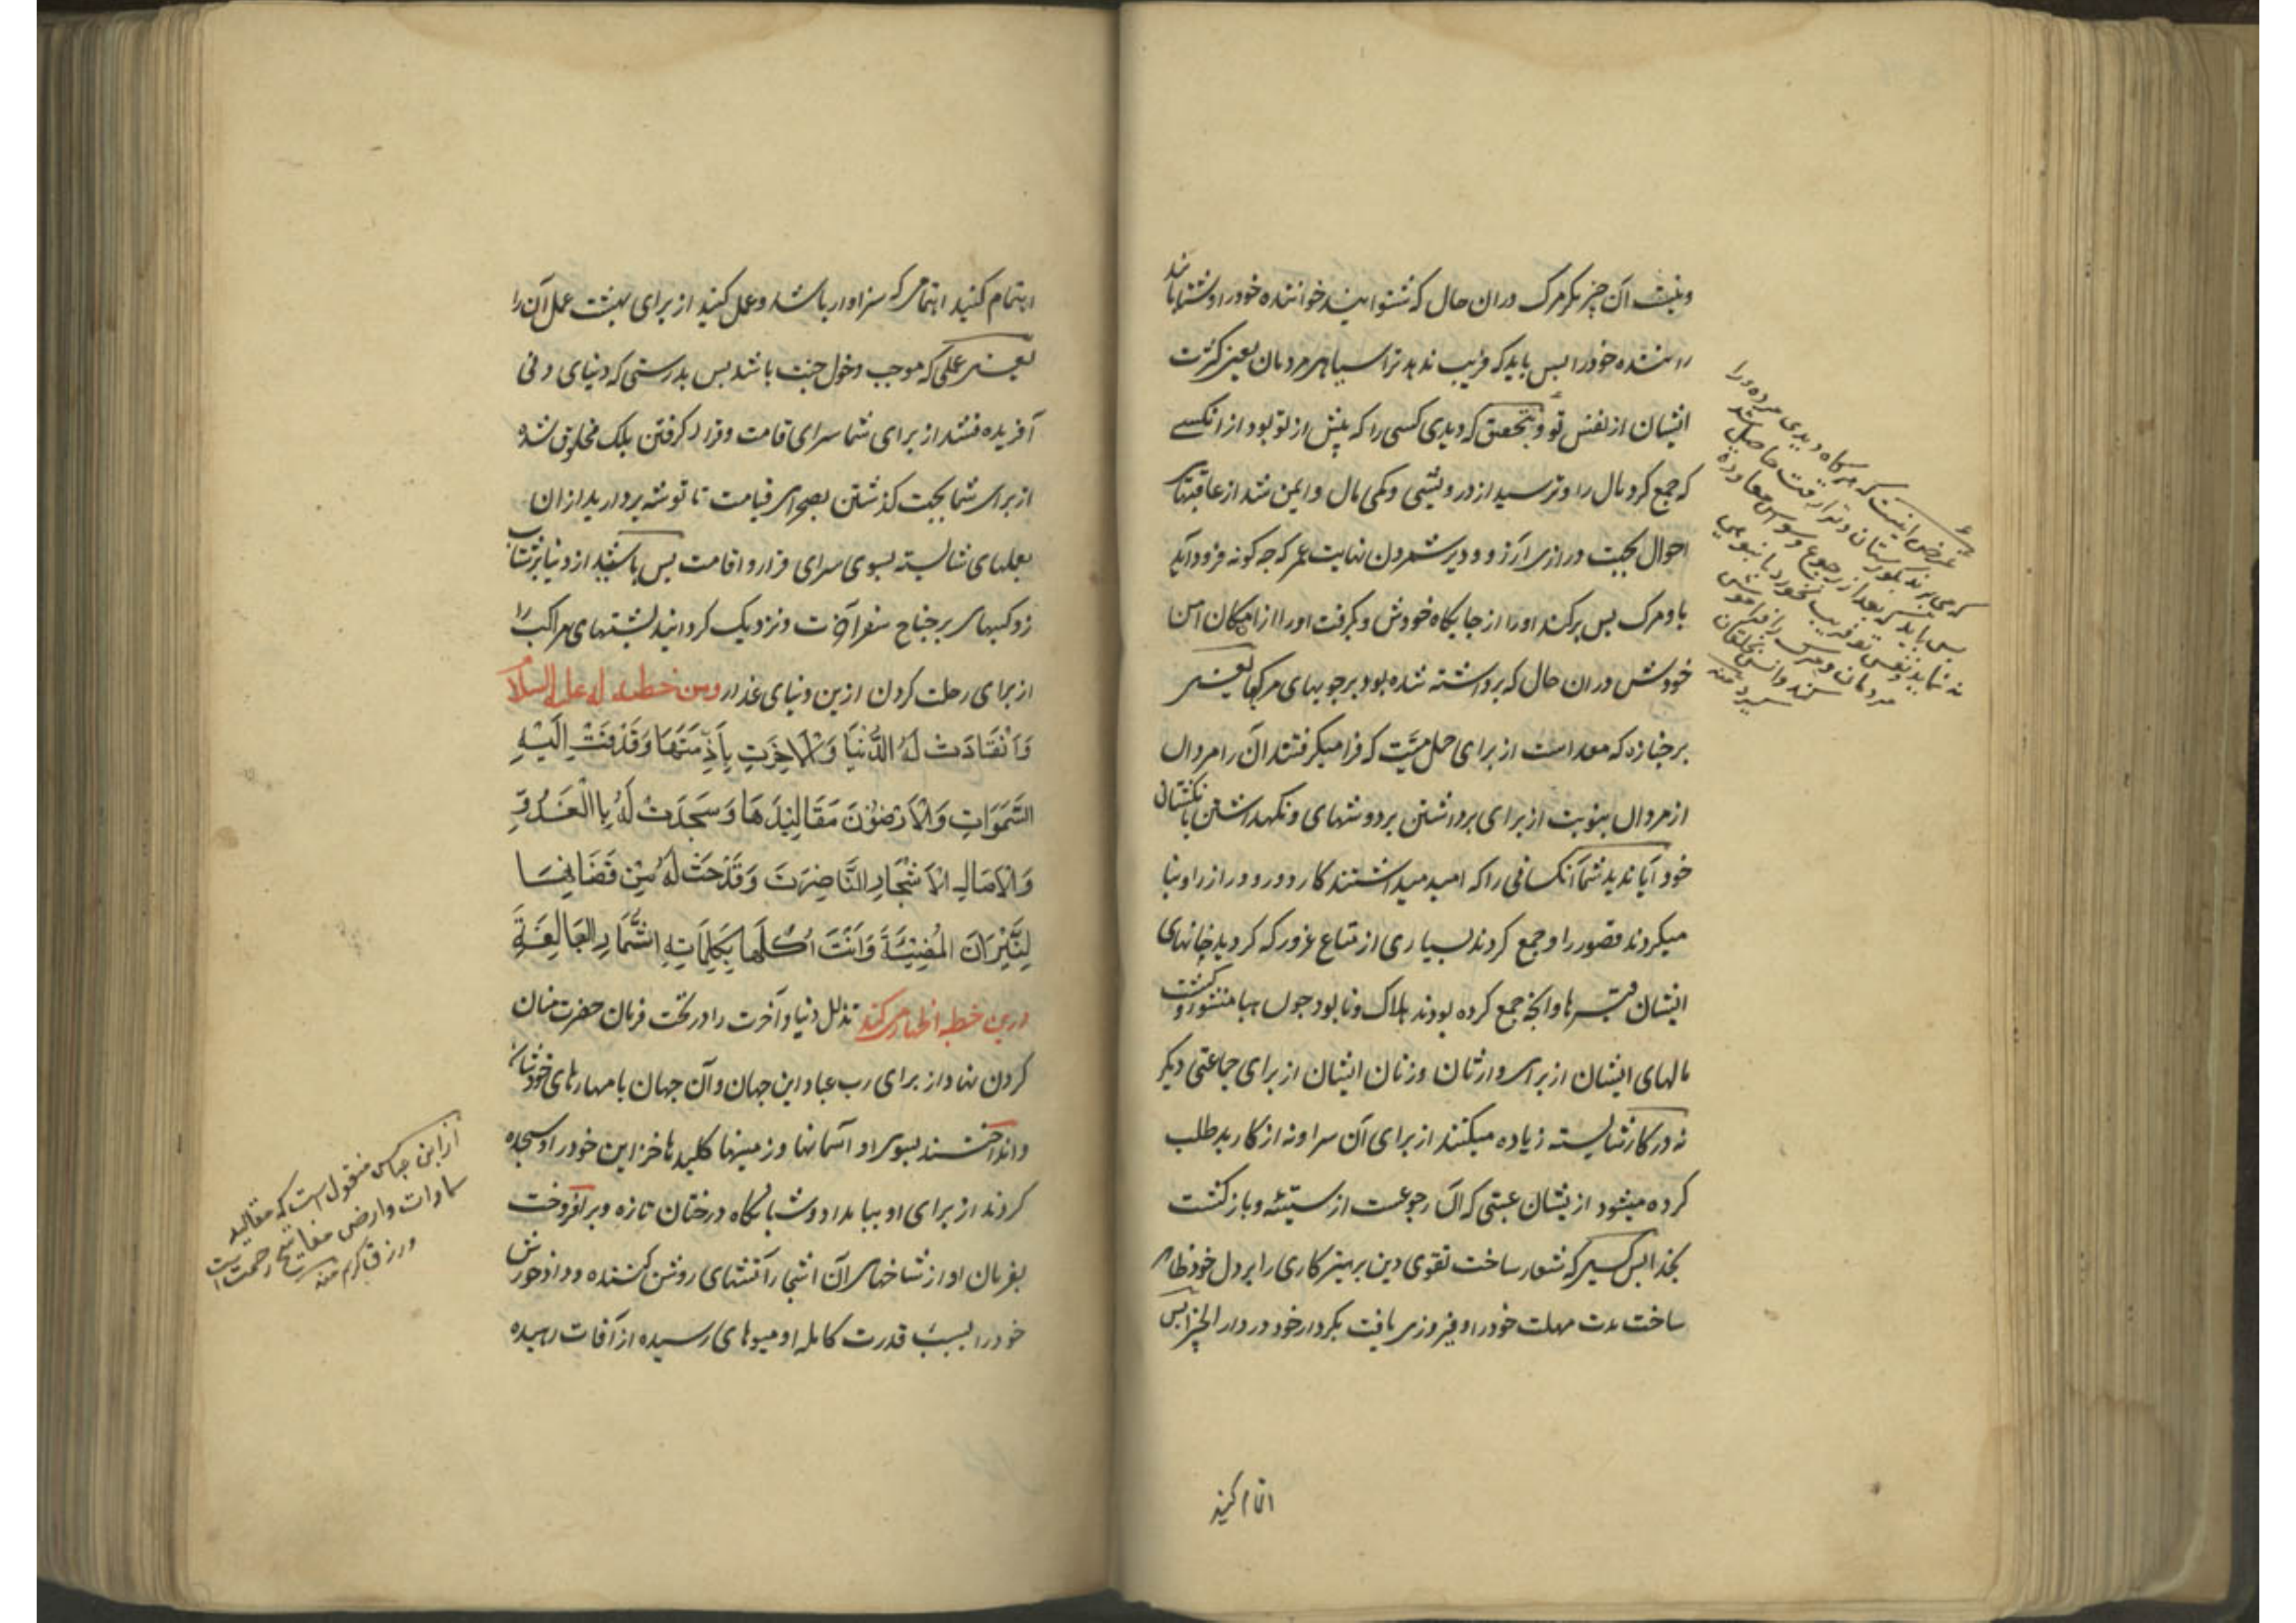 و نیست آن چیز مگر مرک در آن حال که شنوانید خواننده خود را و شتابانند
راننده خود را پس باید که فریب ندهد ترا سیاهی مردمان یعنی کثرت
ایشان از نفس تو و بتحقیق که دیدی کسی را که پیش از تو بود از انکسی
که جمع کرد مال را و ترسید از درویشی و کمی مال و ایمن شد از عاقبتهای
احوال بجهت درازی آرزو و دیر شمردن نهایت عمر که چه کونه فرود آید
باو مرک پس برکند او را از جایکاه خودش و بکرفت او را از امکان امن
خودش در ان حال که برداشته شده بود بر چوبهای مرکها یعنی
بر جنازه که معد است از برای حمل میّت که فرا میکرفتند آن را مردان
از مردان بنوبت از برای برداشتن بر دوشهای و نکهداشتن بانکشتان
خود آیا ندیدید شما آنکسانی را که امید میداشتند کار دور و دراز را و بنا
میکردند قصور را و جمع کردند بسیاری از متاع غرور که کردید خانهای
ایشان قبرها و آنچه جمع کرده بودند هلاک و نابود چون هبا منثورا و کشت
مالهای ایشان از برای وارثان و زنان ایشان از برای جماعتی دیکر
نه در کار شایسته زیاده میکنند از برای آن سرا و نه از کار بد طلب
کرده میشود از یشان عتبی که آن رجوعست از سیّئه و بازکشت
بخدا پس کسی که شعار ساخت تقوی و پرهیزکاری را بر دل خود ظاهر
ساخت مدت مهلت خود را و فیروزی یافت بکردار خود در دار الجزا پس
اهتمام کنید
غرض اینست که هرکاه دیدی مرده را
که می برند بکورستان و ترا رقت حاصل شد
پس باید که بعد از رجوع وسواس معاوده
نه نماید و نفس تو فریب نخورد بانبوهی
مردمان و مرک را فراموش
منه
اهتمام کنید اهتمامی که سزاوار باشد و عمل کنید از برای بهشت عمل آن را
یعنی عملی که موجب دخول جنت باشد پس بدرستی که دنیای دنی
آفریده نشد از برای شما سرای اقامت و قرار کرفتن بلکه مخلوق شده
از برای شما بجهت کذشتن بصحرای قیامت تا توشه بردارید از ان
بعملهای شایسته بسوی سرای قرار و اقامت پس باشید از دنیا بر شتاب
زدکیهای بر جناح سفر آخرت و نزدیک کردانید پشتهای مراکب را
از برای رحلت کردن ازین دنیای غدار ومن خطبه له علیه السلام
وَانْقَادَتْ لَهُ الدُّنْیَا وَالْآخِرَتِ بِاَذِمَّتِهَا وَقَذَفَتْ اِلَیْهِ
السَّمَوَاتِ وَالْاَرَضُوْنَ مَقَالِیْدَهَا وَسَجَدَتْ لَهُ بِاالْغَدُوِّ
وَالْاٰصَالِ الْاَشْجَارِ النَّاضِرَتَ وَقَدَحَتْ لَهُ مِنْ قَضَانِهَا
النِّیْرَانَ الْمُضِیْئَةَ وَآتَتْ اُکُلَهَا بِکَلِمَاتِهِ الثِّمَارِ الیَالِعَةِ
درین خطبه اظهار می کند تذلل دنیا و آخرت را در تحت فرمان حضرت منان
کردن نهاد از برای رب عباد این جهان و آن جهان با مهارهای خودشان
و انداختند بسوی او آسمانها و زمینها کلیدها خزاین خود را و سجده
کردند از برای او ببامداد و شبانکاه درختان تازه و بر افروخت
بفرمان او از شاخهای آن اشجار آتشهای روشن کننده و داد خورش
خود را بسبب قدرت کامله او میوهای رسیده از آفات رهیده
از ابن عباس منقول است که مقالید
سماوات و ارض مفاتیح رحمت است
و رزق کرم منه